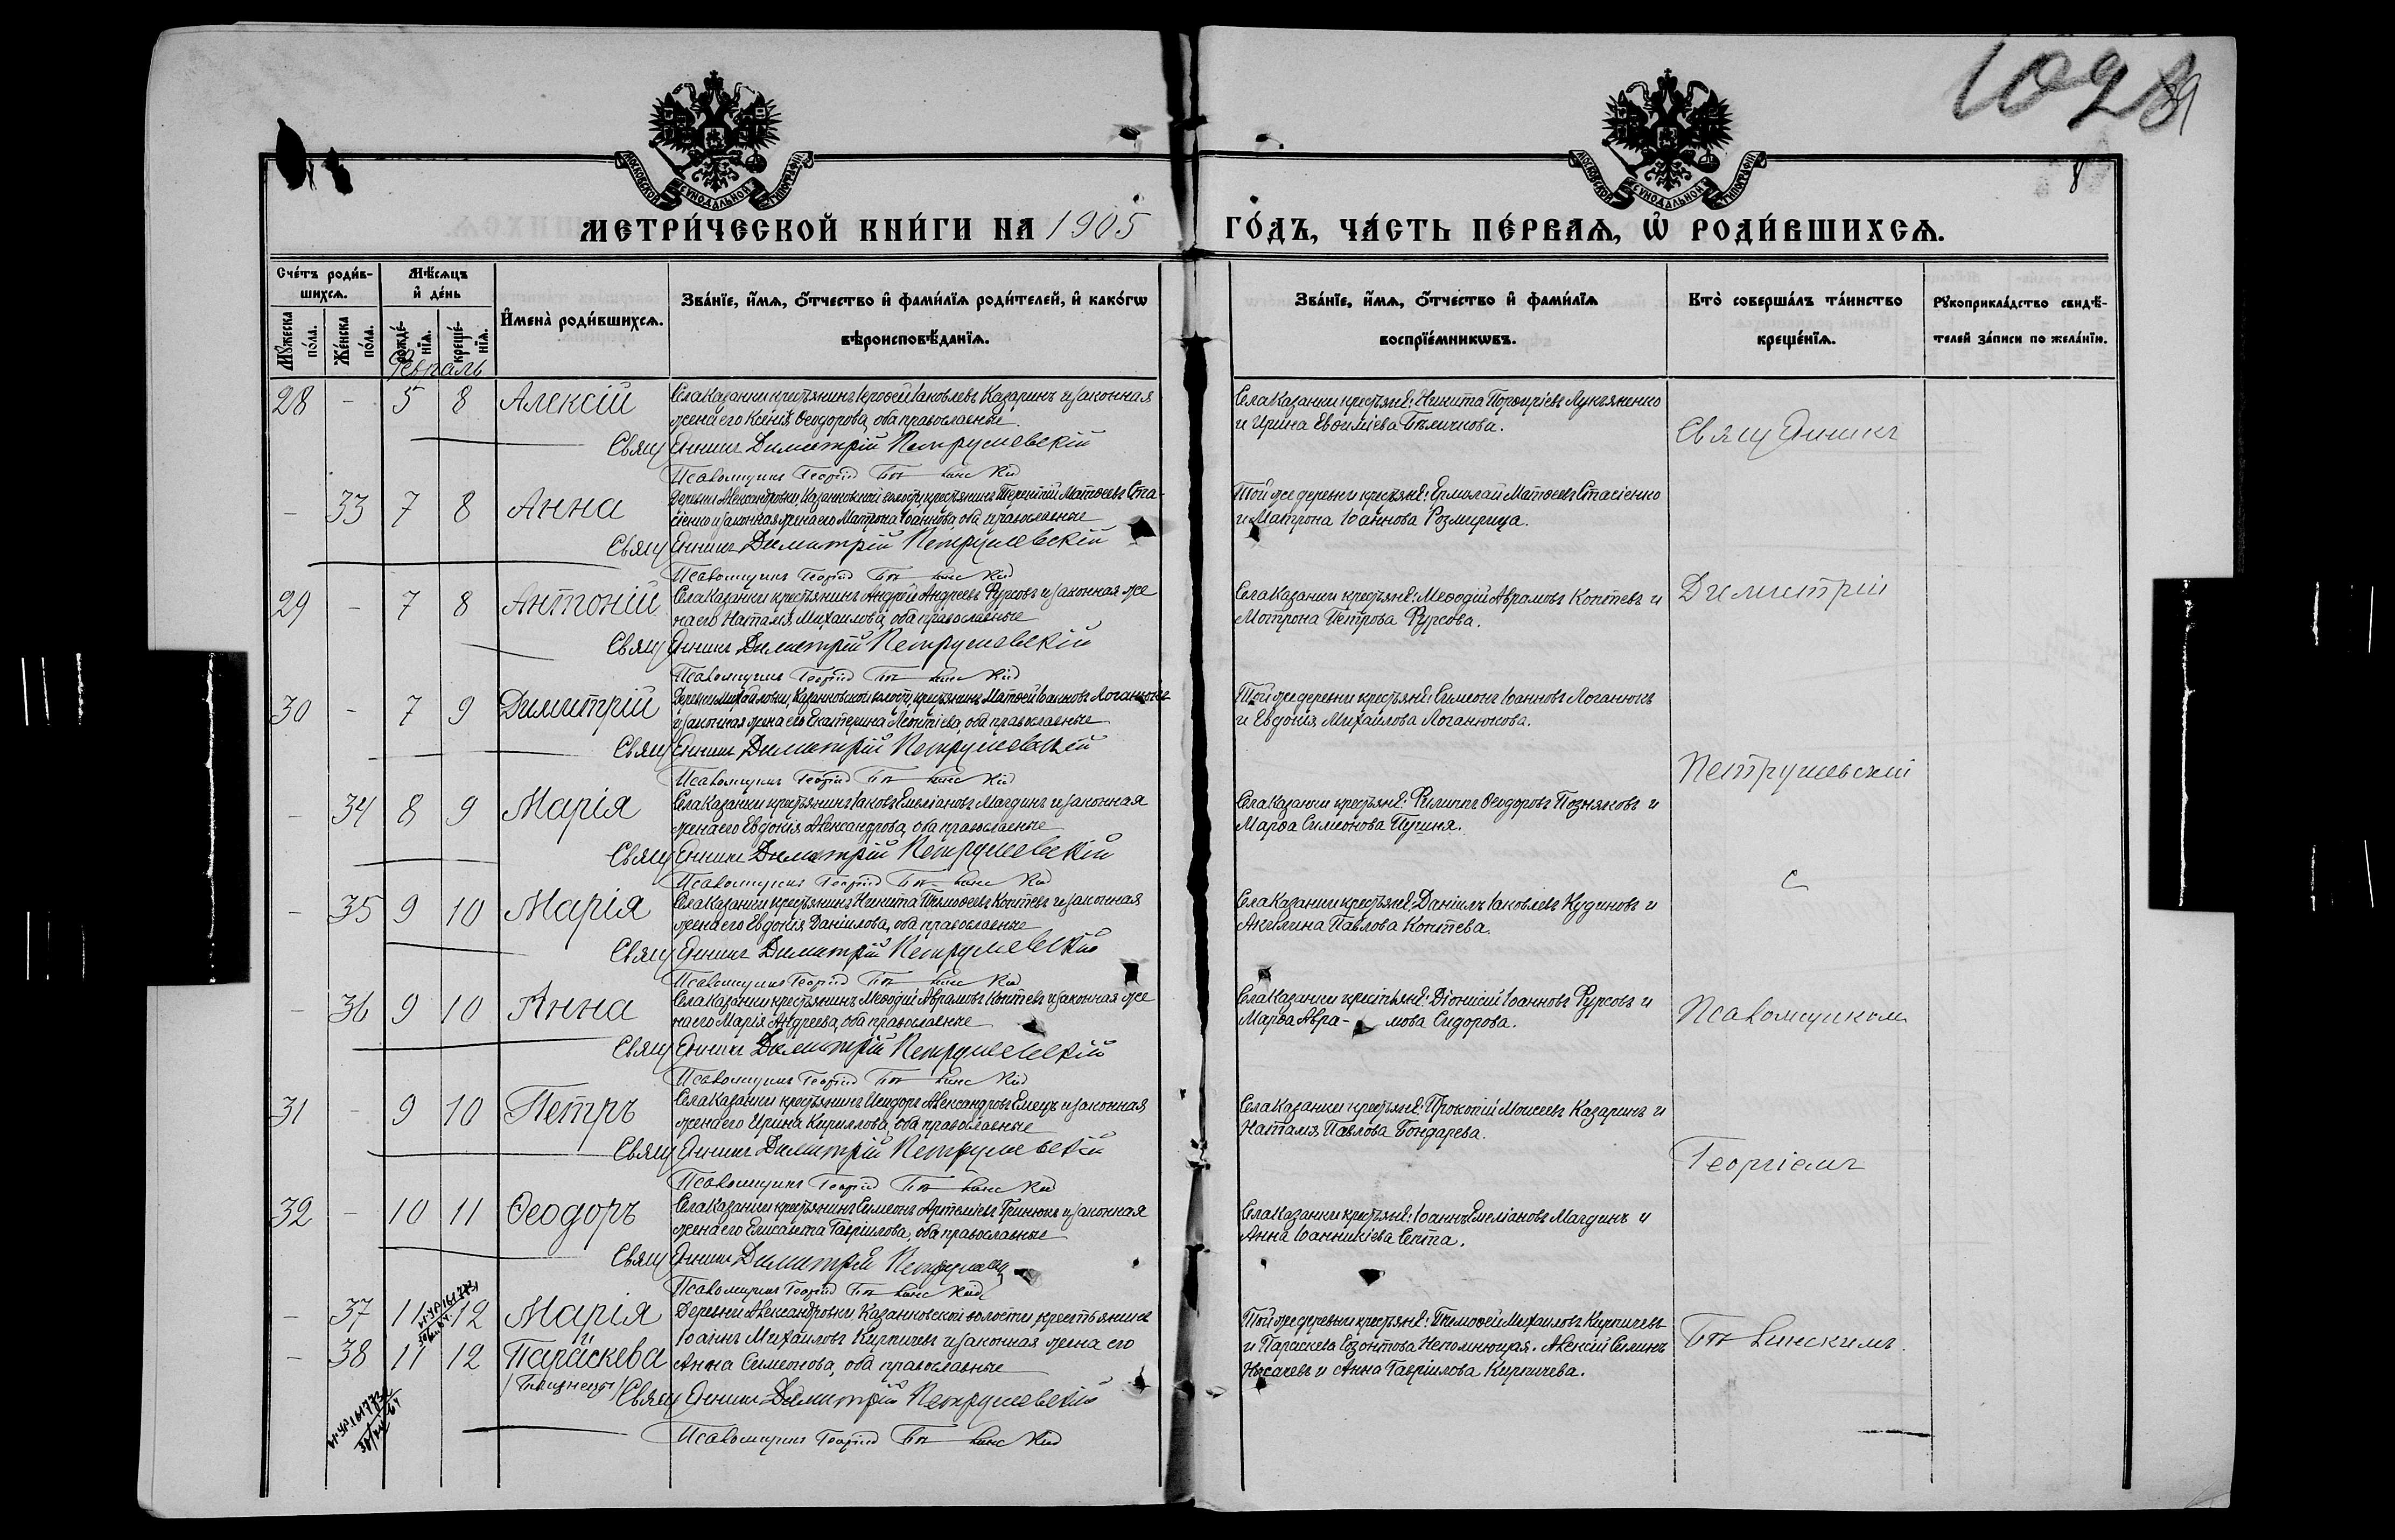 1028
89
8
МОСКОВСКОЙ СѴНОДАЛЬНОЙ ТИПОГРАФІИ
МОСКОВСКОЙ СѴНОДАЛЬНОЙ ТИПОГРАФІИ
МЕТРИ́ЧЕСКОЙ КНИ́ГИ НА 1905 ГО́ДЪ, ЧА́СТЬ ПЕ́РВАѦ, Ѡ҆ РОДИ́ВШИХСѦ.
Сче́тъ роди́в-
шихсѧ.
Мꙋ́жеска по́ла.
Же́нска по́ла.
Мѣ́сѧцъ и҆ де́нь
рожде́-нїѧ.
креще́-нїѧ.
И҆мена̀ роди́вшихсѧ.
Зва́нїе, и҆́мѧ, ѻ҆́тчество и҆ фами́лїѧ роди́телей, и҆ како́гѡ
вѣроисповѣ́данїѧ.
Зва́нїе, и҆́мѧ, ѻ҆́тчество и҆ фами́лїѧ
воспрїе́мникѡвъ.
Кто̀ соверша́лъ та́инство
креще́нїѧ.
Рꙋкоприкла́дство свидѣ́-
телей за́писи по жела́нїю.
Февраль
28 - 5 8 Алексій Села Казанки крестьянинъ Іеровей Іаковлевъ Казаринъ и законная
жена его Ксенія Ѳеодорова, оба православные.
Села Казанки крестьяне: Никита Порфиріевъ Лукьяненко
и Ирина Евфиміева Бѣличкова.
Священникъ Димитрій Петрушевскій
Псаломщикъ Георгій
- 33 7 8 Анна Деревни Александровки, Казанковской волости, крестьянинъ Терентій Матѳеевъ Ста-
сіенко и законная жена его Матрона Іоаннова, оба православные
Той же деревни крестьяне: Ермолай Матѳеевъ Стасіенко
и Матрона Іоаннова Розмирица.
Священникъ Димитрій Петрушевскій
Псаломщикъ Георгій
29 - 7 8 Антоній Села Казанки крестьянинъ Андрей Андреевъ Фурсовъ и законная же
на его Наталія Михаилова, оба православные
Села Казанки крестьяне: Меѳодій Аврамовъ Коптевъ и
Мотрона Петрова Фурсова.
Священникъ Димитрій Петрушевскій
Псаломщикъ Георгій
30 - 7 9 Димитрій Деревни Михайловки, Казанковской волости, крестьянинъ Матѳей Іоанновъ Логанюкъ
и законная жена его Екатерина Леонтіева, оба православные
Той же деревни крестьяне: Симеонъ Іоанновъ Логанюкъ
и Евдокія Михаилова Логанюкова.
Священникъ Димитрій Петрушевскій
Псаломщикъ Георгій
- 34 8 9 Марія Села Казанки крестьянинъ Іаковъ Емеліановъ Магдинъ и законная
жена его Евдокія Александрова, оба православные
Села Казанки крестьяне: Филиппъ Ѳеодоровъ Позняковъ и
Марѳа Симеонова Пушня.
Священникъ Димитрій Петрушевскій
Псаломщикъ Георгій
- 35 9 10 Марія Села Казанки крестьянинъ Никита Тимоѳеевъ Коптевъ и законная
жена его Евдокія Даніилова, оба православные
Села Казанки крестьяне: Даніилъ Іаковлевъ Кудиновъ и
Акилина Павлова Коптева.
Священникъ Димитрій Петрушевскій
Псаломщикъ Георгій
- 36 9 10 Анна Села Казанки крестьянинъ Меѳодій Аврамовъ Коптевъ и законная же
на его Марія Андреева, оба православные
Села Казанки крестьяне: Діонисій Іоанновъ Фурсовъ и
Марѳа Авра- мова Сидорова.
Священникъ Димитрій Петрушевскій
Псаломщикъ Георгій
31 - 9 10 Петръ Села Казанки крестьянинъ Исидоръ Александровъ Емецъ и законная
жена его Ирина Кириллова, оба православные
Села Казанки крестьяне: Прокопій Моисеевъ Казаринъ и
Наталія Павлова Бондарева.
Священникъ Димитрій Петрушевскій
Псаломщикъ Георгій
32 - 10 11 Ѳеодоръ Села Казанки крестьянинъ Симеонъ Артеміевъ Гринюкъ и законная
жена его Елисавета Гавріилова, оба православные
Села Казанки крестьяне: Іоаннъ Емеліановъ Магдинъ и
Анна Іоанникіева Септа.
Священникъ Димитрій
Псаломщикъ Георгій
- 37 11 12 Марія Деревни Александровки, Казанковской волости, крестьянинъ
- 38 11 12 Параскева
/Близнецы/
Іоаннъ Михаиловъ Кирпичевъ и законная жена его
Анна Симеонова, оба православные
Той же деревни крестьяне: Тимоѳей Михаиловъ Кирпичевъ
и Параскева Непомнющая. Алексій Силинъ
Носачевъ и Анна Гавріилова Кирпичева.
Священникъ Димитрій Петрушевскій
Псаломщикъ Георгій
Священникъ
Димитрій
Петрушевскій
с
Псаломщикомъ
Георгіемъ